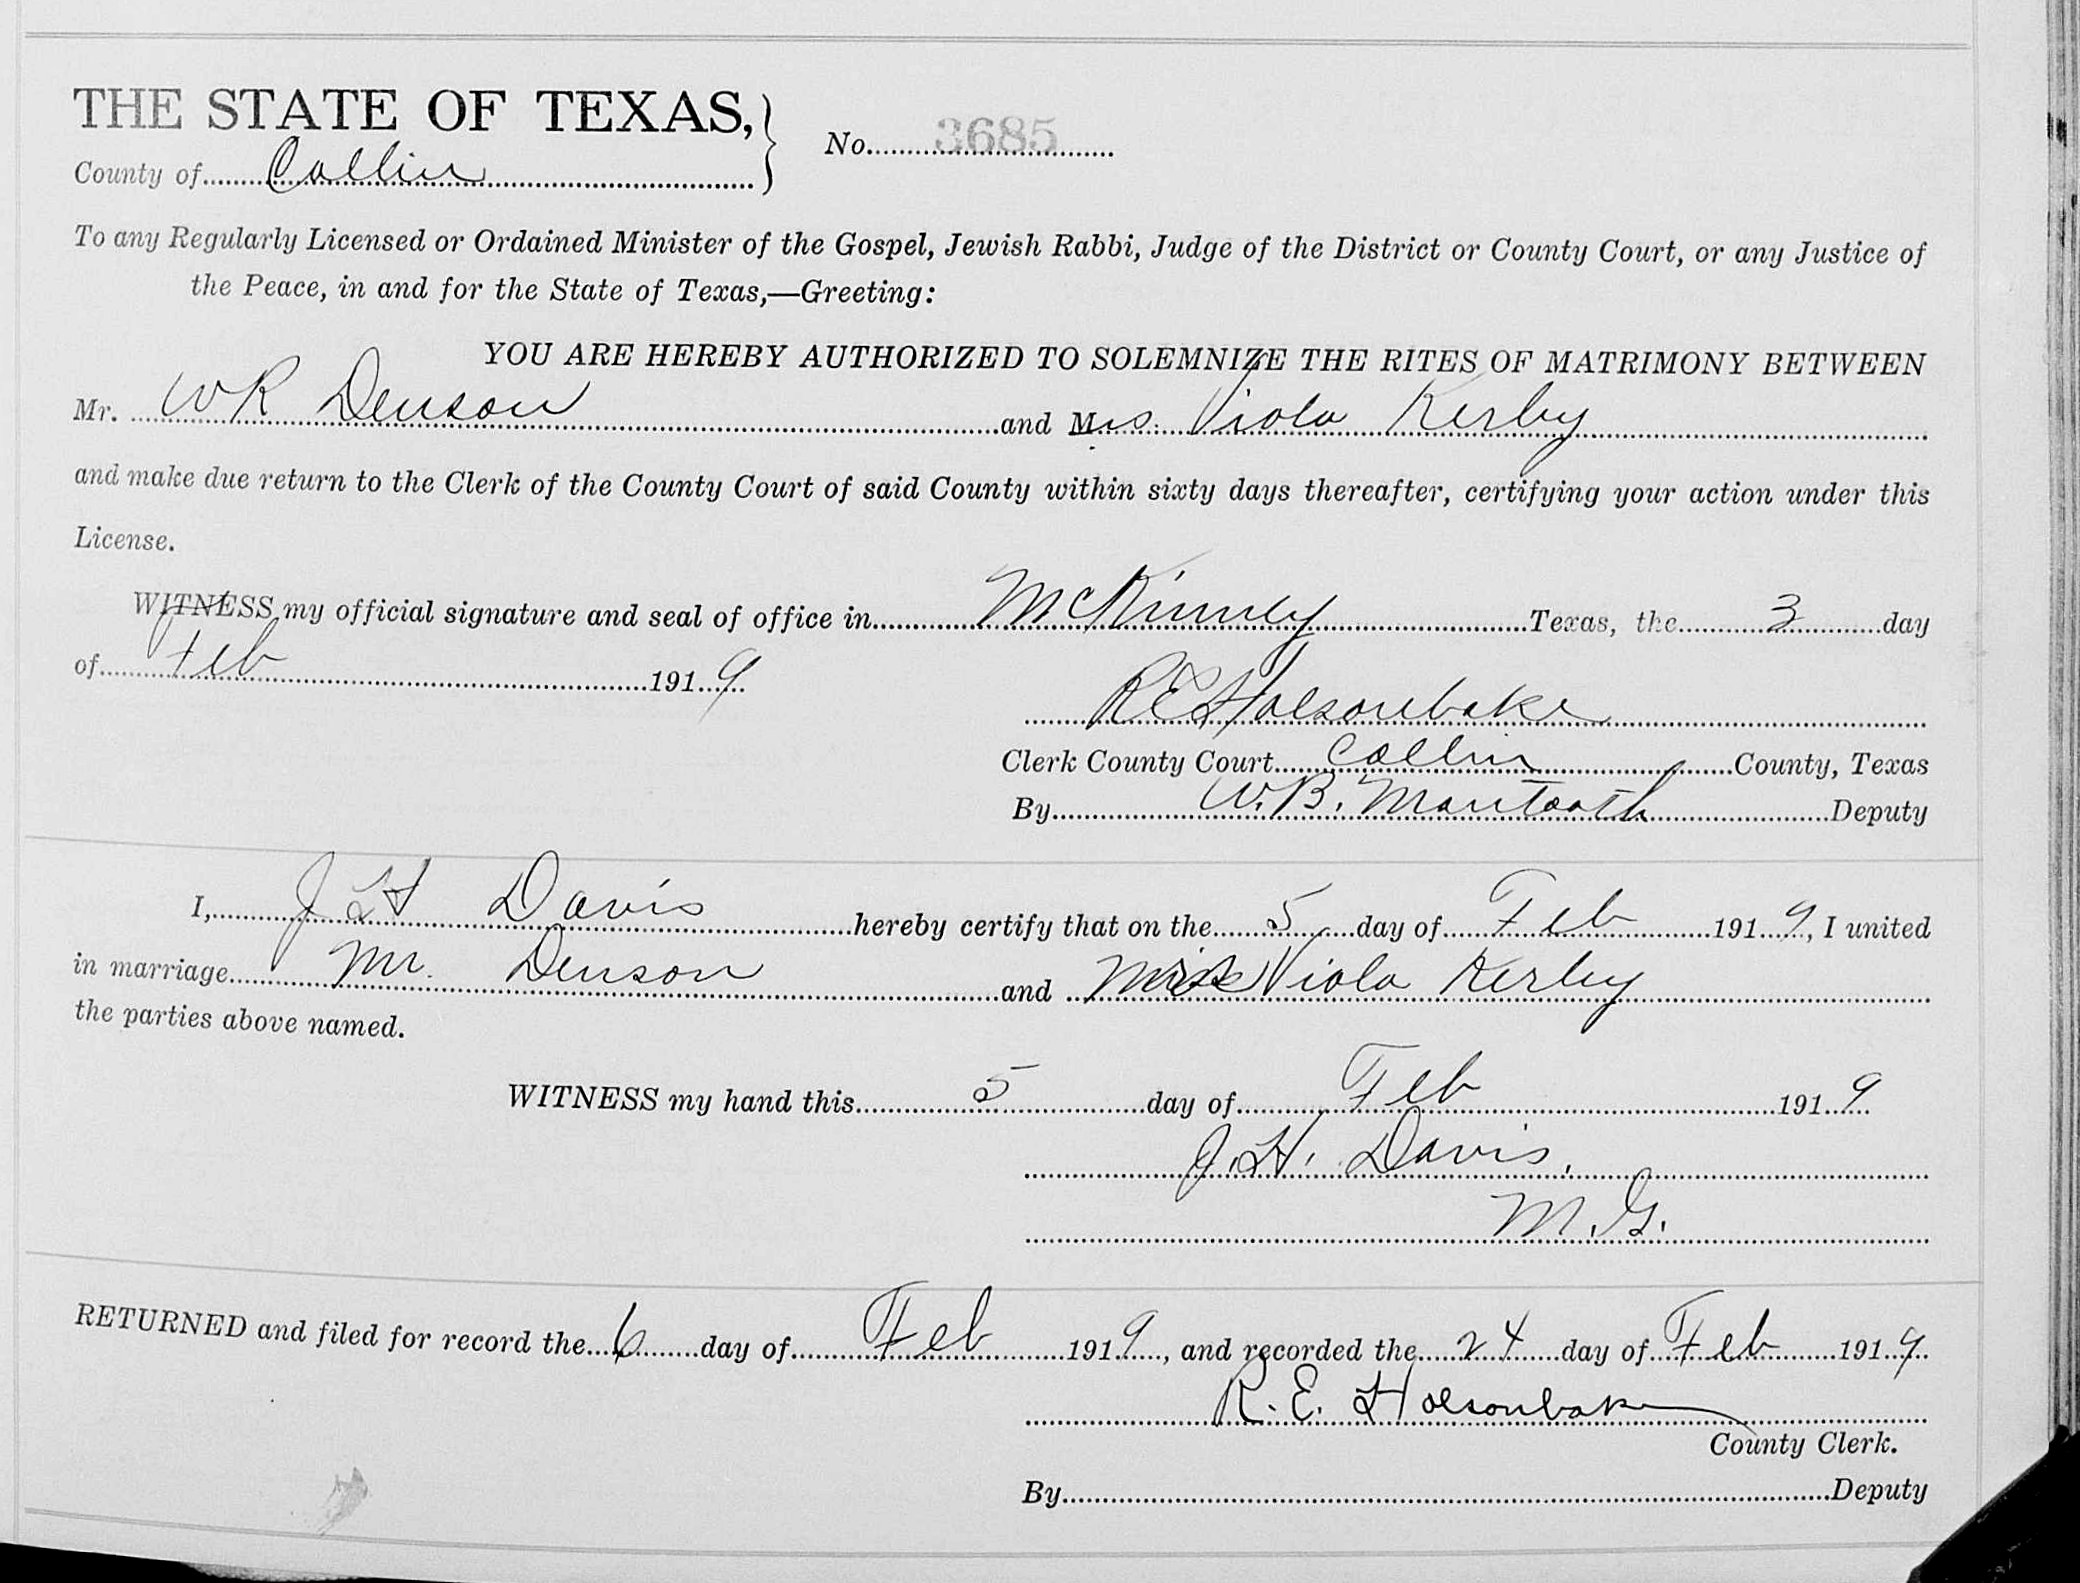 THE STATE OF TEXAS,
County of Collin
No. 3685
To any Regularly Licensed or Ordained Minister of the Gospel, Jewish Rabbi, Judge of the District or County Court, or any Justice of
the Peace, in and for the State of Texas,—Greeting:
YOU ARE HEREBY AUTHORIZED TO SOLEMNIZE THE RITES OF MATRIMONY BETWEEN
Mr. W R Denson and Mrs. Viola Kerby
and make due return to the Clerk of the County Court of said County within sixty days thereafter, certifying your action under this
License.
WITNESS my official signature and seal of office in McKinney Texas, the 3 day
of Feb 1919
R E Holsonbake
Clerk County Court Collin County, Texas
By W. B. Mantooth Deputy
I, J H Davis hereby certify that on the 5 day of Feb 1919, I united
in marriage Mr. Denson and Viola Kerby
the parties above named.
WITNESS my hand this 5 day of Feb 1919
J. H. Davis,
M. G.
RETURNED and filed for record the 6 day of Feb 1919, and recorded the 24 day of Feb 1919.
R. E. Holsonbake
County Clerk.
By Deputy